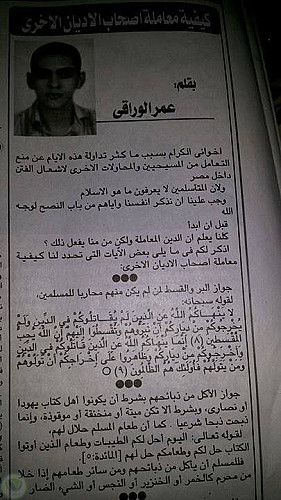 كيفية معاملة اصحاب الاديان الاخرى
بقلم:
عمر الوراقي
اخوانى الكرام بسبب ما كثر تداولة هذه الايام عن منع
التعامل من المسيحيين والمحاولات الاخرى لاشعال الفتن
داخل مصر
ولان المتاسلمين لا يعرفون ما هو الاسلام
وجب علينا ان نذكر انفسنا واياهم من باب النصح لوجه
الله
قبل ان ابدأ
كلنا يعلم ان الدين المعاملة ولكن من منا يفعل ذلك ؟
اذكر لكم فى ما يلى بعض الآيات التى تحدد لنا كيفية
معاملة اصحاب الاديان الاخرى:
جواز البر والقسط لمن لم يكن منهم محاربا للمسلمين،
لقوله سبحانه:
لا يَنْهَاكُمُ اللَّهُ عَنِ الَّذِينَ لَمْ يُقَاتِلُوكُمْ فِي الدِّينِ وَلَمْ
يُخْرِجُوكُمْ مِنْ دِيَارِكُمْ أَنْ تَبَرُّوهُمْ وَتُقْسِطُوا إِلَيْهِمْ إِنَّ اللَّهَ يُحِبُّ
الْمُقْسِطِينَ (٨) إِنَّمَا يَنْهَاكُمُ اللَّهُ عَنِ الَّذِينَ قَاتَلُوكُمْ فِي الدِّينِ
وَأَخْرَجُوكُمْ مِنْ دِيَارِكُمْ وَظَاهَرُوا عَلَى إِخْرَاجِكُمْ أَنْ تَوَلَّوْهُمْ
وَمَنْ يَتَوَلَّهُمْ فَأُولَئِكَ هُمُ الظَّالِمُونَ (٩)
جواز الأكل من ذبائحهم بشرط أن يكونوا أهل كتاب يهودا
او نصارى، وبشرط ألا تكون ميتة أو منخنقة أو موقوذة، وإنما
ذبحت ذبحا شرعيا . كما أن طعام المسلم حلال لهم،
لقوله تعالى: اليوم احل لكم الطيبات وطعام الذين اوتوا
الكتاب حل لكم وطعامكم حل لهم [المائدة:٥].
فللمسلم ان ياكل من ذبائحهم ومن سائر طعامهم إذا خلا
من محرم كالخمر أو الخنزير أو النجس أو الشيء الضار